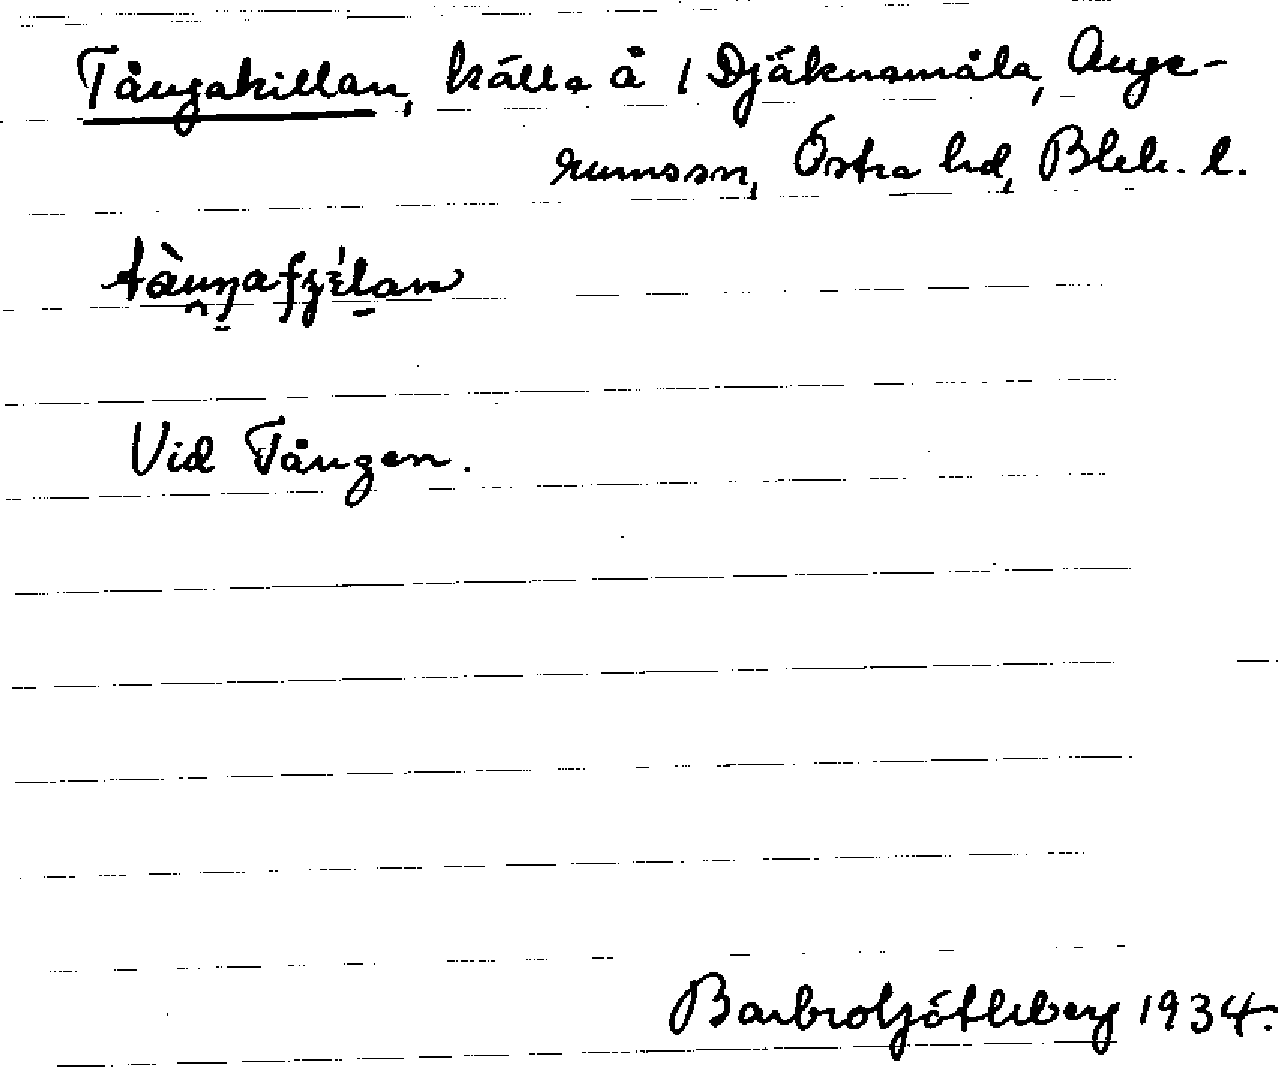 Tångakillan, källa å 1 Djäknamåla, Auge-
rumssn, Östra hd, Blek. l.
Vid Tången.
Barbro Götleberg 1934.